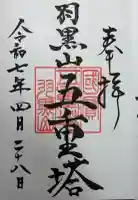 奉拝
羽黒山
五重塔
令和七年四月二十八日